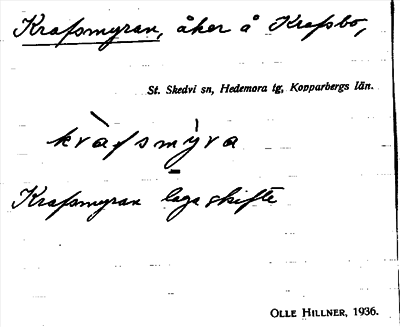 Krafsmyran, åker å Krafsbo,
St. Skedvi sn, Hedemora tg, Kopparbergs län.
kràfsmỳra
Krafsmyran laga skifte
OLLE HILLNER, 1936.